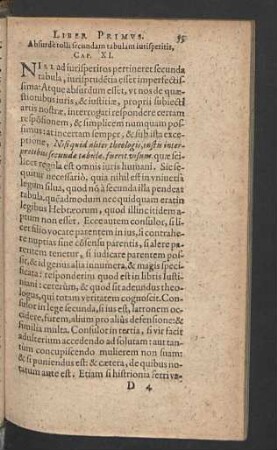 LIBER PRIMVS. 95
Absurdè tolli secundam tabulam iurisperitis,
CAP. XI.
NISI ad iurisperitos pertineret secunda
tabula, iurisprudētia esset imperfectis-
sima: Atque absurdum esset, vt nos de quæ-
stionibus iuris, & iustitiæ, proprii subiecti
artis nostræ, interrogati respondere certam
respōsionem, & simplicem nunquam possi-
mus: at incertam semper, & sub ista exce-
ptione, Nisi quid aliter theologis, iustis inter-
pretibus secundæ tabulæ, fuerit visum. quæ sci-
licet regula est omnis iuris humani. Sic se-
quatur necessariò, quia nihil est vnius in ea
legum sua, quod nō à secunda illa pendeat
tabula, quēadmodum nec quidquam erat in
legibus Hebræorum, quod illinc itidem a-
ptum non esset. Ecce autem consulor, si li-
cet filio vocare parentem in ius, si contrahe-
re nuptias sine cōsensu parentis, si alere pa-
rentem tenetur, si iudicare parentem pos-
sit, & id genus alia innumera, & magis speci-
ficata: responderim quod est in libris Iusti-
niani: cæterùm, & quod sit adeundus theo-
logus, qui totam veritatem cognoscit. Con-
sulor in lege secunda, si ius est, latronem oc-
cidere, furem, alium pro aliûs defensione: &
similia multa. Consulor in tertia, si vir facit
adulterium accedendo ad solutam: aut tan-
tùm concupiscendo mulierem non suam:
& si puniendus est: & cætera, de quibus no-
tatum ante est. Etiam si histrionia seruiua-
D 4